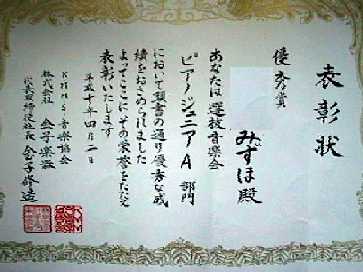 表彰状
優秀賞
みずほ殿
あなたは選抜音楽会
ピアノジュニアA部門
において頭書の通り優秀な成
績をおさめられました
よってここにその栄誉をたたえ
表彰いたします
平成十年四月二日
音楽協会
株式会社 金子楽器
代表取締役社長 金子修造